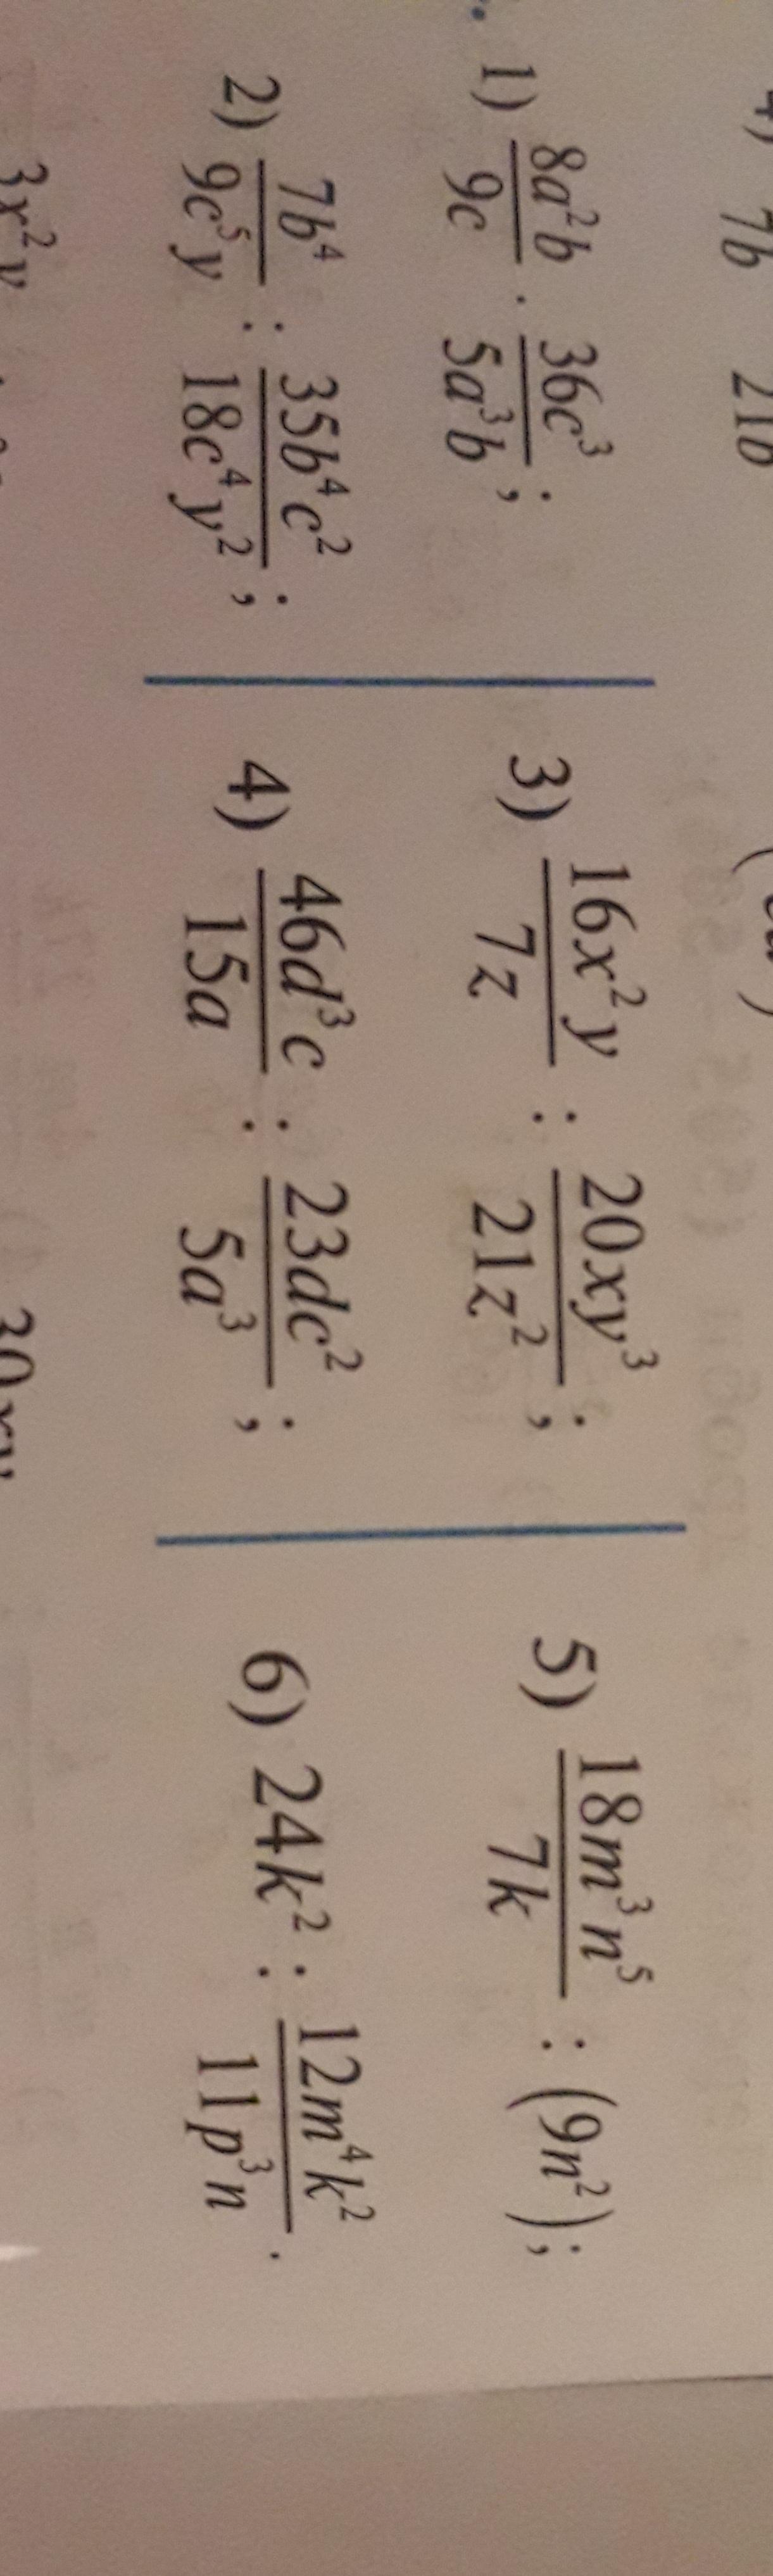 4) 7b 21b
1) \frac{8a^2b}{9c} · \frac{36c^3}{5a^3b};
3) \frac{16x^2y}{7z} : \frac{20xy^3}{21z^2};
5) \frac{18m^3n^5}{7k} : (9n^2);
2) \frac{7b^4}{9c^5y} : \frac{35b^4c^2}{18c^4y^2};
4) \frac{46d^3c}{15a} : \frac{23dc^2}{5a^3};
6) 24k^2 : \frac{12m^4k^2}{11p^3n}.
3x^2y 30xy